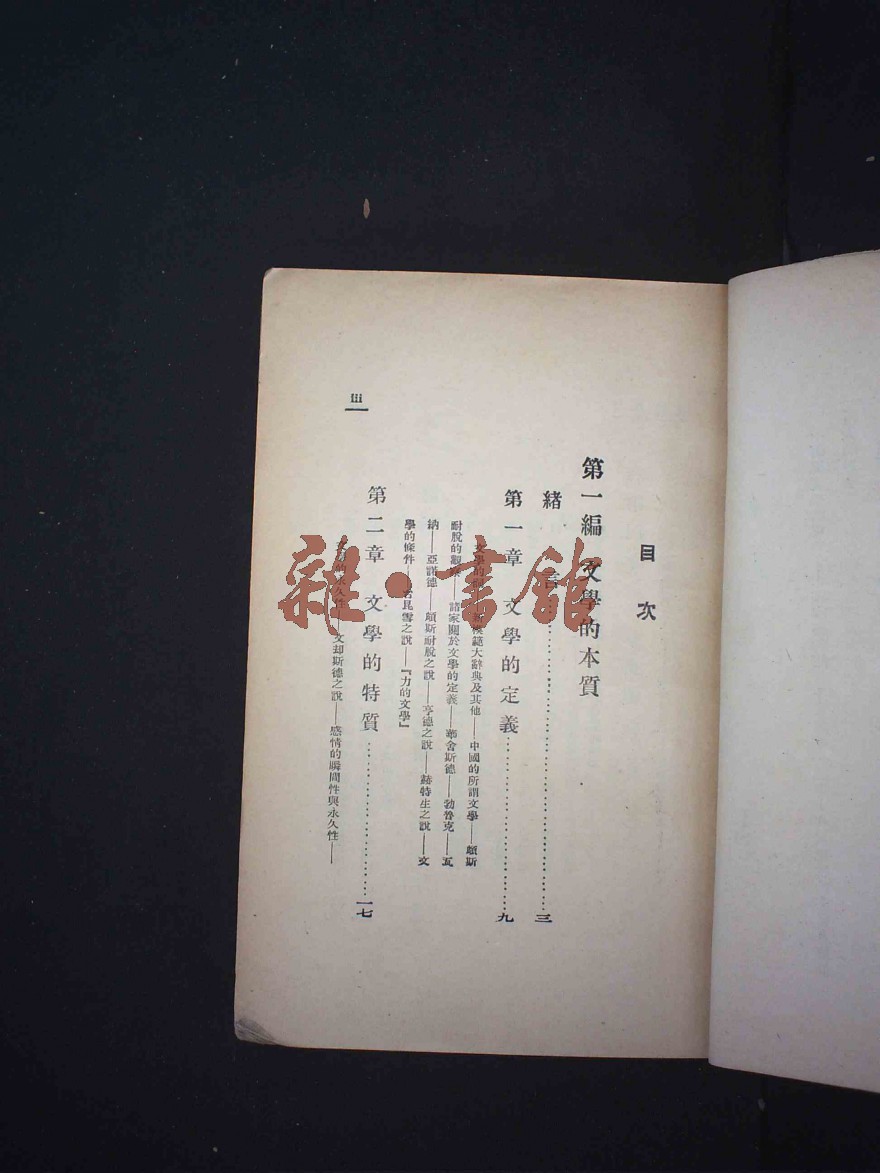 目次
第一編 文學的本質
緒言……三
第一章 文學的定義……九
文學的 新模範大辭典及其他——中國的所謂文學——頗斯
耐脫的觀察——諸家關於文學的定義——華舍斯德——勃魯克——瓦
納——亞諾德——頗斯耐脫之說——亨德之說——赫特生之說——文
學的條件——昆雪之說——『力的文學』
第二章 文學的特質……一七
的永久性——文却斯德之說——感情的瞬間性與永久性——
iii
雜·書館